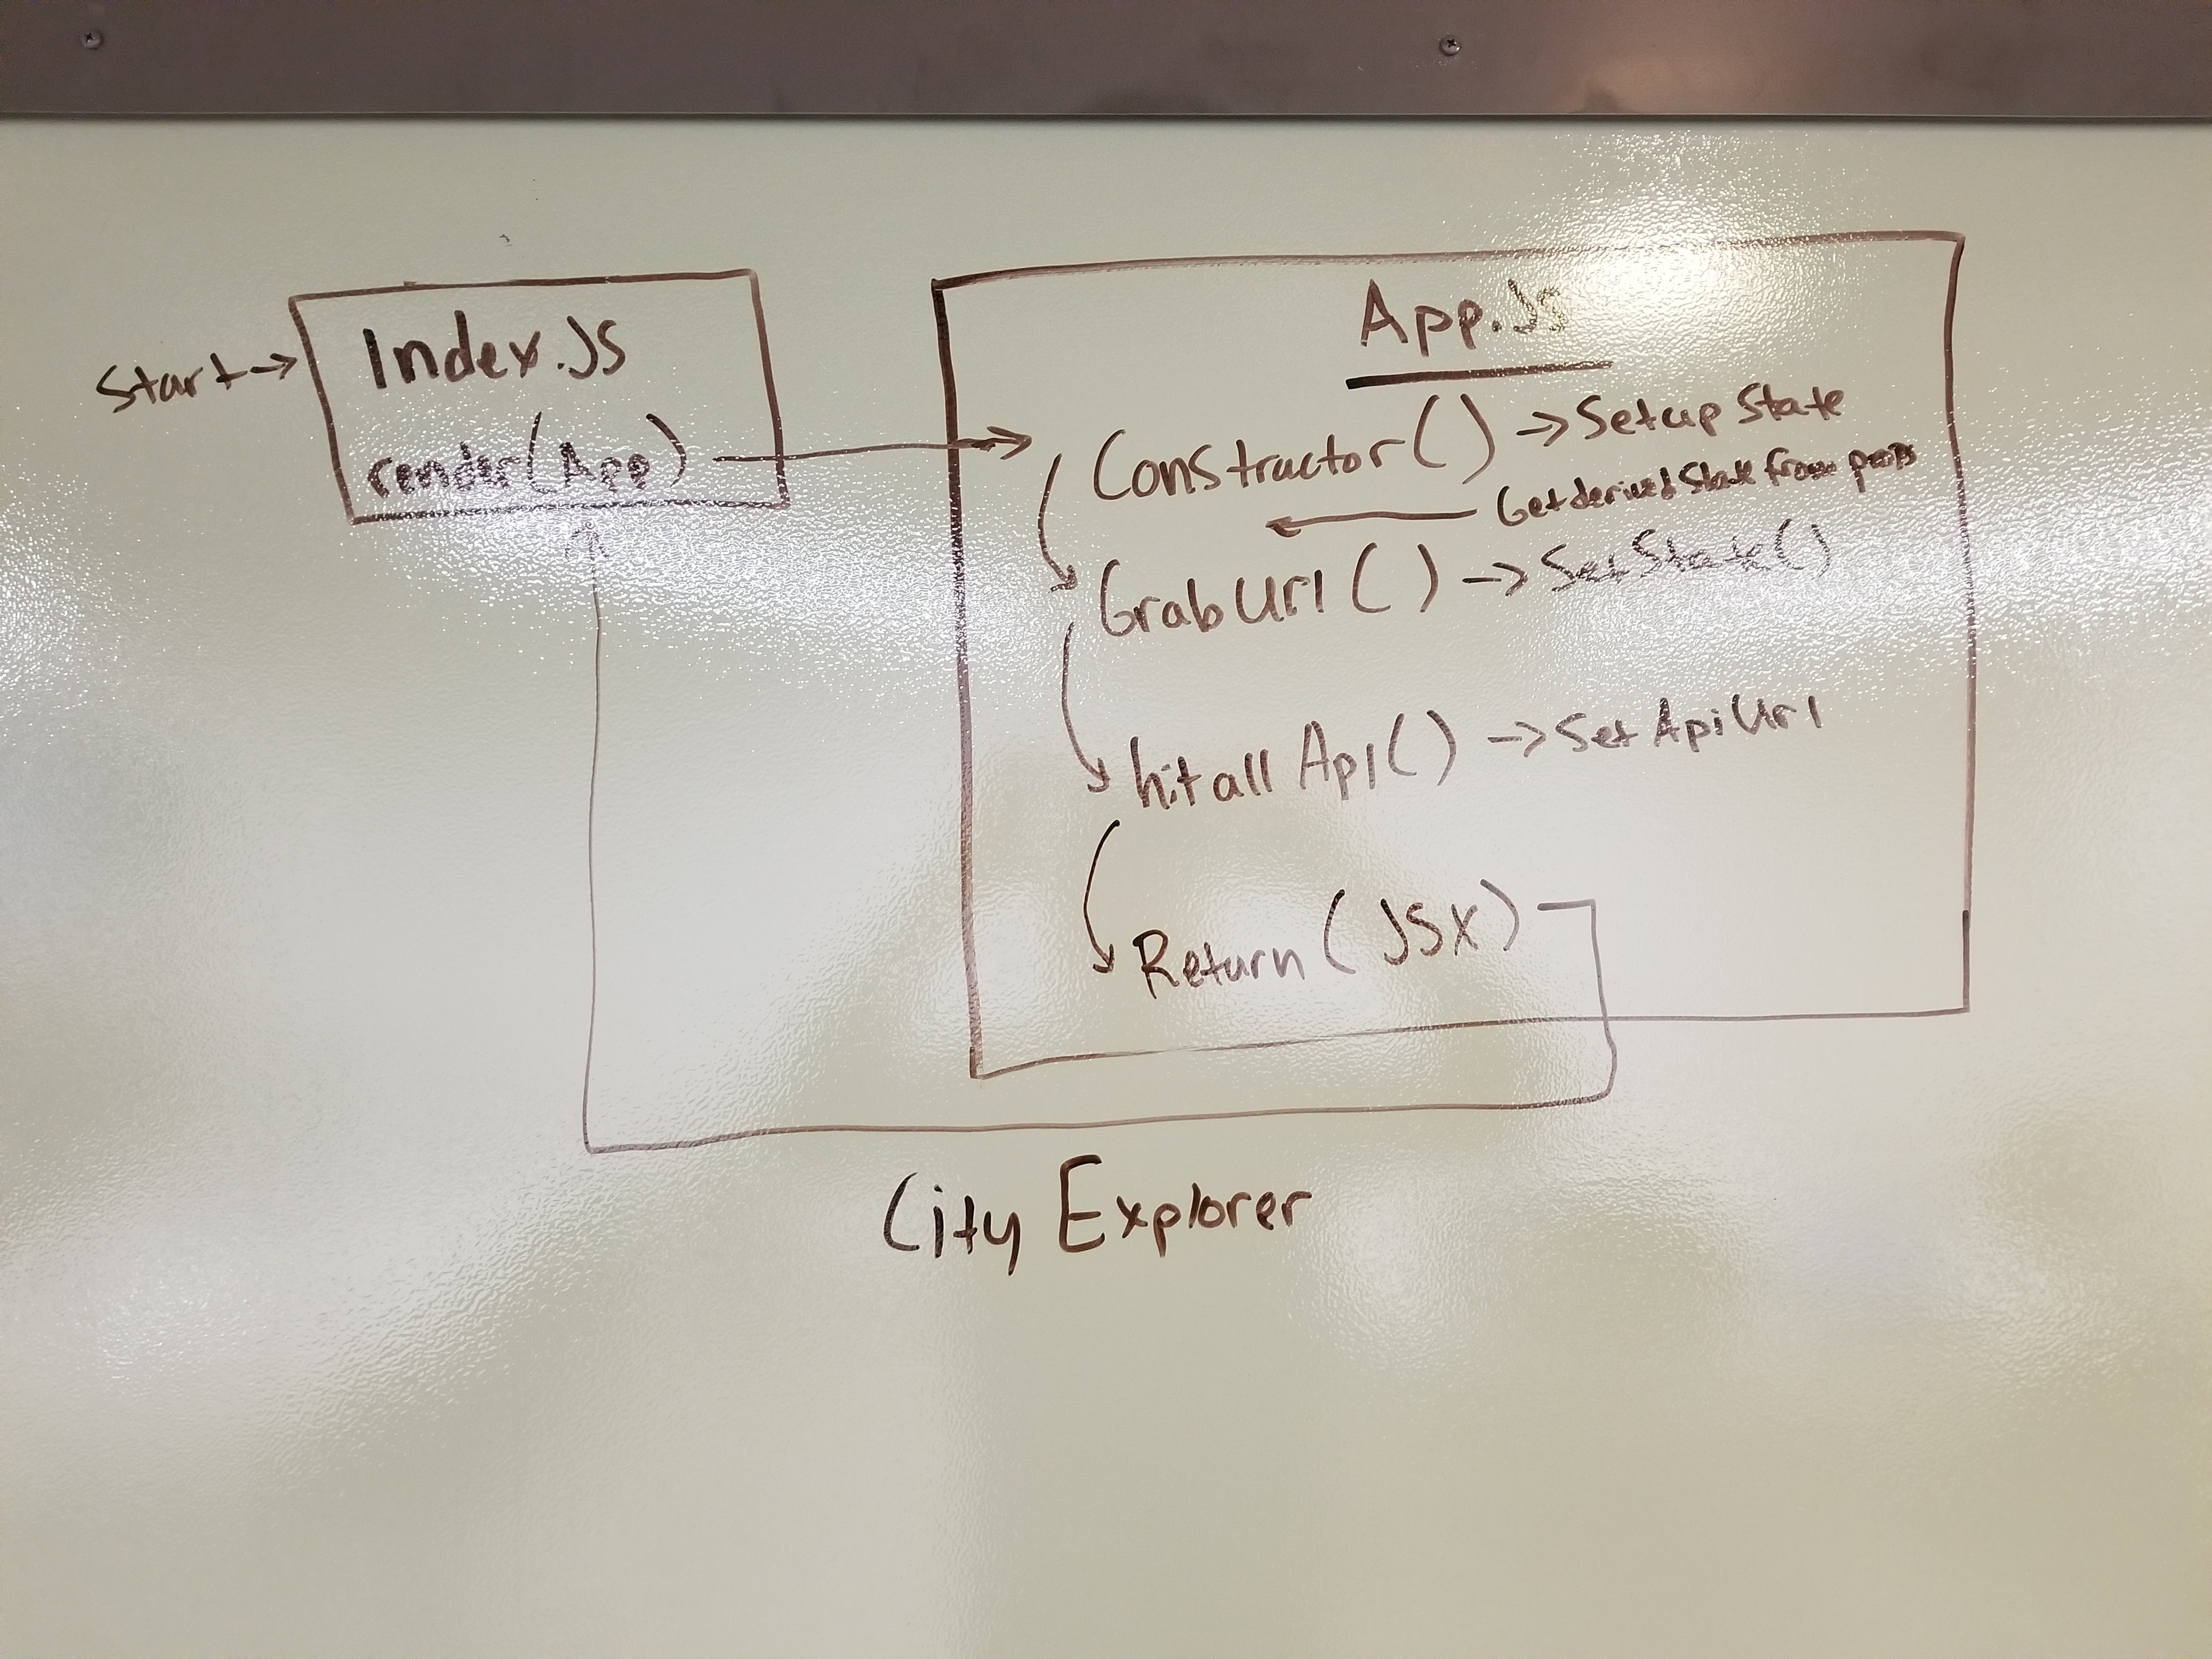 Start→
Index.JS
render(App)
App.JS
Constructor() → Setup State
← Getderived State From props
GrabUrl() → SetState()
hitall Api() → Set ApiUrl
Return (JSX)
City Explorer